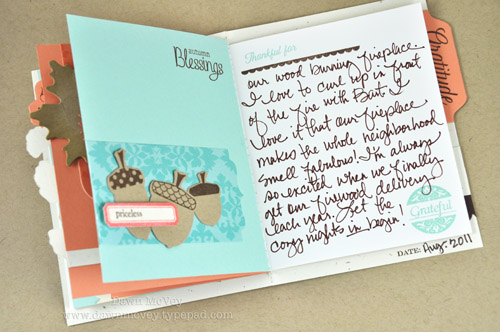 autumn
Blessings
priceless
Thankful for
our wood burning fireplace.
I love to curl up in front
of the fire with Bart. I
love it that our fireplace
makes the whole neighborhood
smell fabulous! I'm always
so excited when we finally
get our firewood delivery
each year. Let the
cozy nights in begin!
Grateful
DATE: Aug. 2011
Gratitude
Dawn McVey
www.dawnmcvey.typepad.com